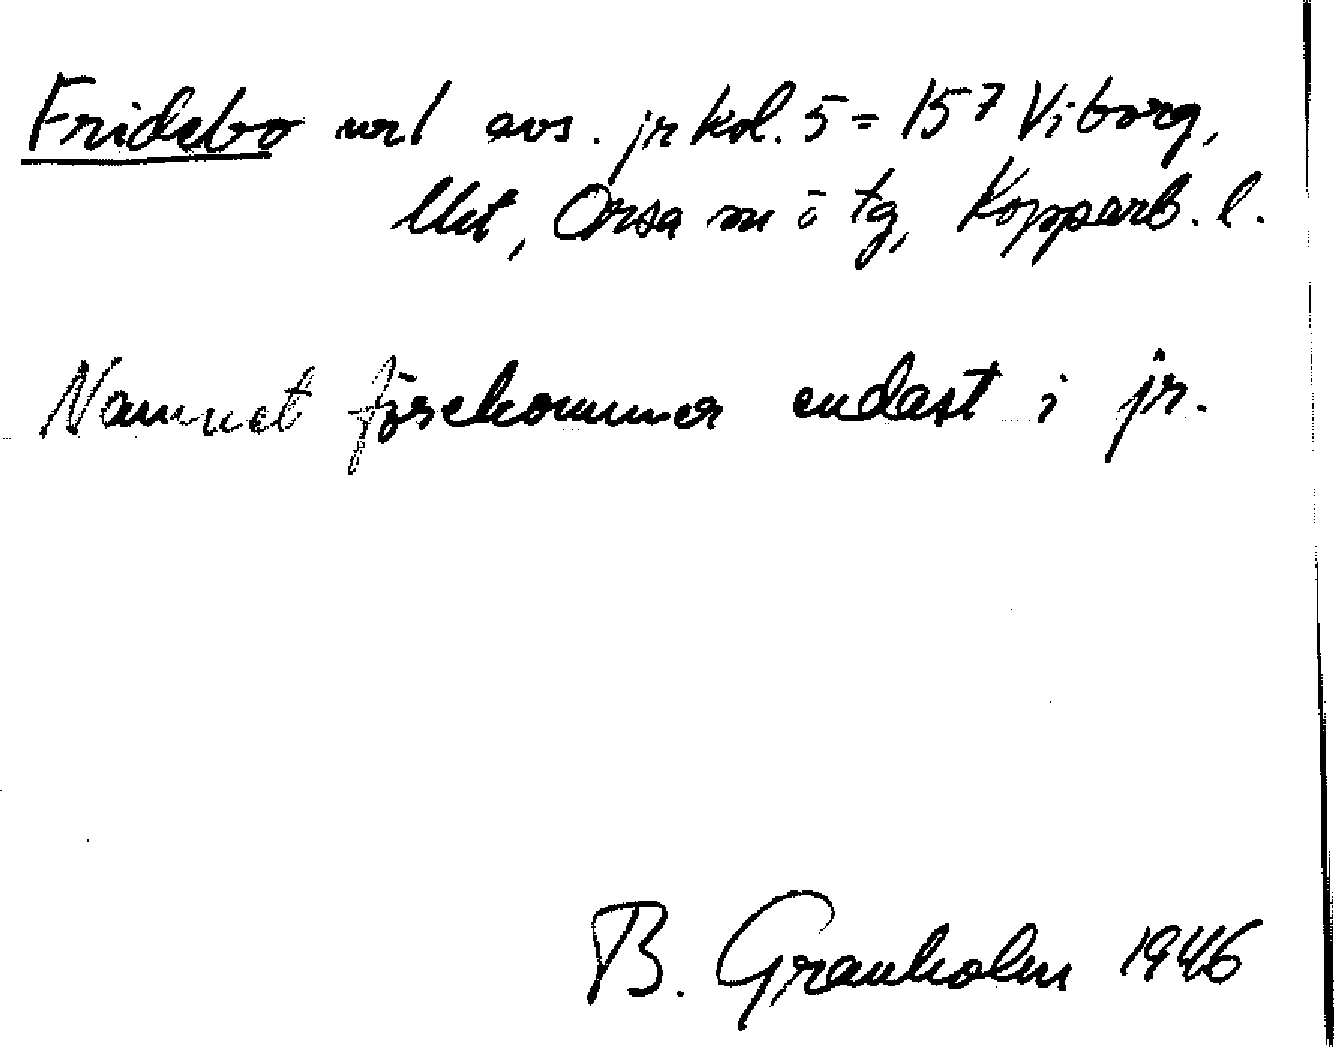 Fridebo url avs. jr kol. 5 = 15⁷ Viborg,
lht, Orsa sn ö tg, Kopparb. l.
Namnet förekommer endast i jr.
B. Granholm 1946